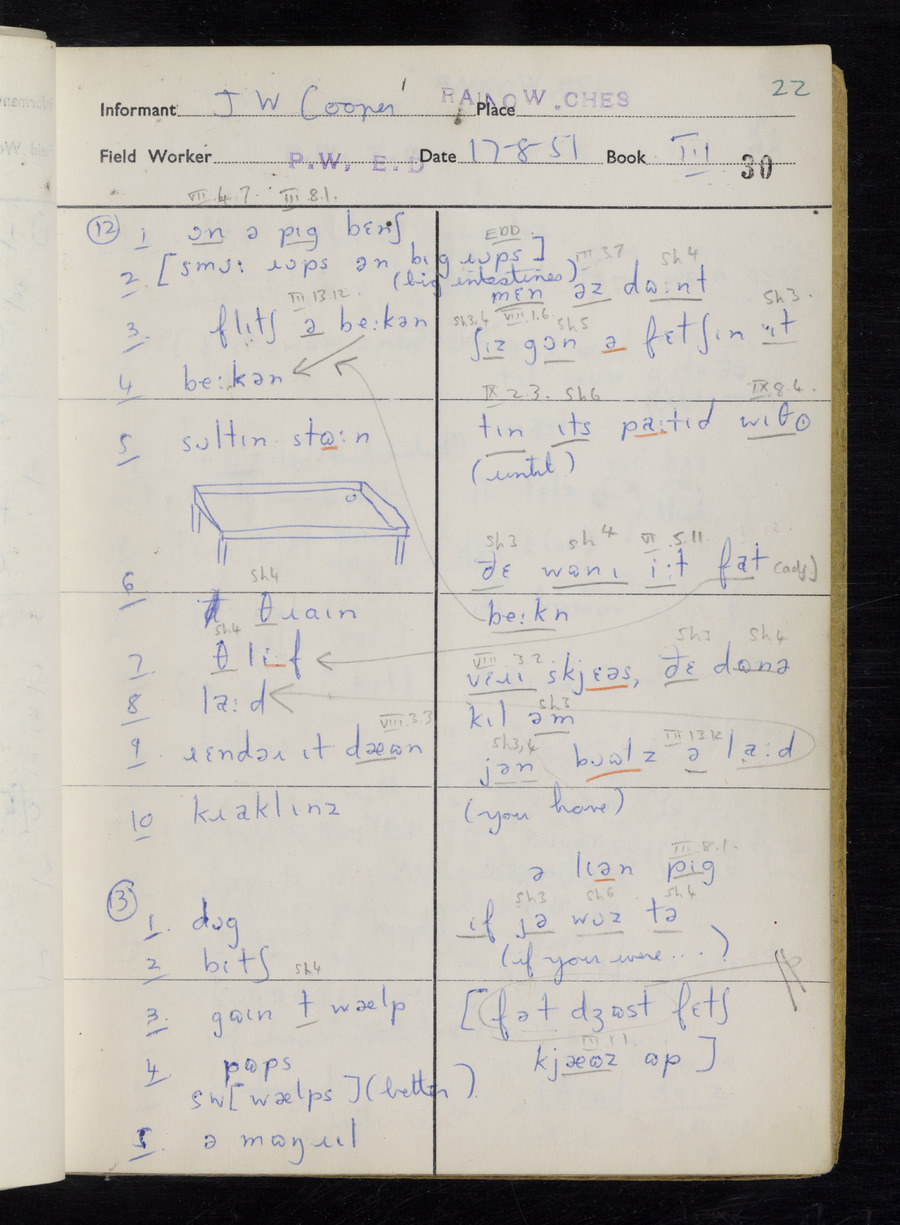 22
Informant J W Cooper Place RAINOW, CHES
Field Worker P.W. E.D Date 17-8-51 Book III 30
VII.4.7. III.8.1.
⑫ 1 ɔn ə pɪg bɛnʃ
2. [smɔ: ɹɔps ən bɪg ɹɔps]
(big intestines)
III.13.12.
3. flɪtʃ ə be:kən
4 be:kən
5 sɔltɪn stɷ:n
6 sh4
θɹaɪn
sh4
7 θ lɪ:f
8 la:d
VIII.3.3
9 ɹɛndəɹ ɪt dæɷn
10 kɹaklɪnz
⑬
1. dɔg
2 bɪtʃ
sh4
3. gɷɪn t wælp
4 pɷps
sw[wælps] (better)
5. ə mɷŋɹɪl
EDD
III.3.7 sh4
mɛn əz dɷ:nt
sh3,4 VIII.1.6. sh5 sh3.
ʃɪz gɔn ə fɛtʃɪn ɪt
IX.2.3. sh6 IX.8.4.
tɪn ɪts pa:tɪd wɪθ
(until)
sh3 sh4 VI.5.11
ðɛ wɷnɪ i:t fat (adj)
be:kn
VIII.3.2 sh3 sh4
vɛɹɪ skjɛəs, ðɛ dɷnə
sh3
kɪl əm
sh3,4 III.13.12
jən bɔɷlz ə la:d
(you have)
III.8.1.
ə lɪən pɪg
sh3 sh6 sh4
ɪf jə wɔz tə
(if you were....)
[fət dʒɷst fɛtʃ
III.1.1
kjæɷz ɷp]